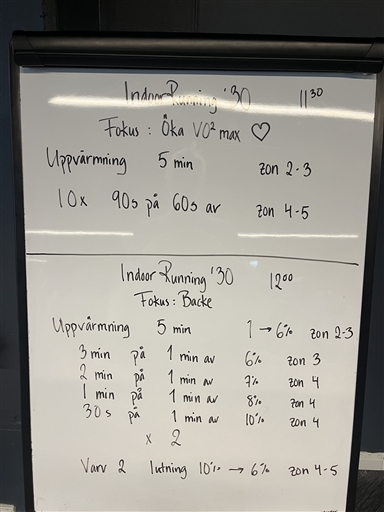 Indoor Running '30 11³⁰
Fokus: Öka VO² max ♡
Uppvärmning 5 min zon 2-3
10x 90s på 60s av zon 4-5
Indoor Running '30 12⁰⁰
Fokus: Backe
Uppvärmning 5 min 1 → 6% zon 2-3
3 min på 1 min av 6% zon 3
2 min på 1 min av 7% zon 4
1 min på 1 min av 8% zon 4
30 s på 1 min av 10% zon 4
x 2
Varv 2 lutning 10% → 6% zon 4-5